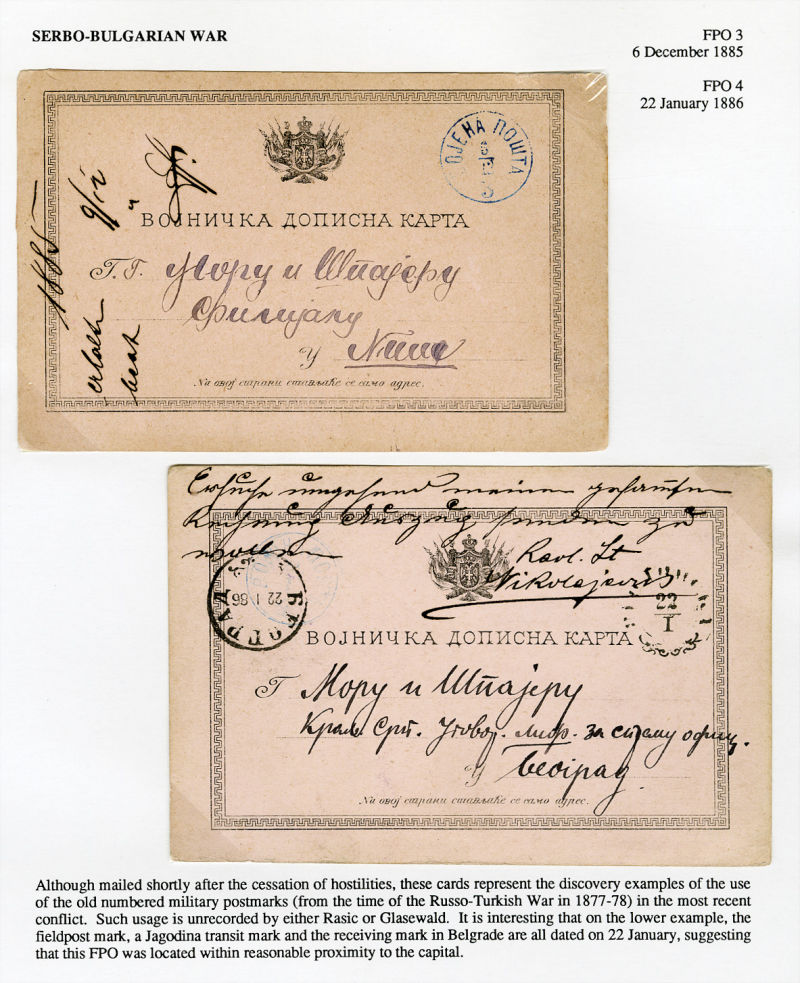 SERBO-BULGARIAN WAR
FPO 3
6 December 1885
FPO 4
22 January 1886
ОЈЕНА ПОШТА
3
ВОЈНИЧКА ДОПИСНА КАРТА
Г.Г. Мору и Шпајеру
Филијалу
У Нишу
На овој страни стављаће се само адрес.
1885
9/12
erhalten
beant
Ersuche umgehend meinen gesamten
Rechnung Auszug senden zu
wollen
Nikolajević
БЕОГРАД
22 I 86
I
ВОЈНИЧКА ДОПИСНА КАРТА
Г Мору и Шпајеру
Краљ Срп. Уговор. Лифр. за спрему офиц.
У Београд
На овој страни стављаће се само адрес.
Although mailed shortly after the cessation of hostilities, these cards represent the discovery examples of the use
of the old numbered military postmarks (from the time of the Russo-Turkish War in 1877-78) in the most recent
conflict. Such usage is unrecorded by either Rasic or Glasewald. It is interesting that on the lower example, the
fieldpost mark, a Jagodina transit mark and the receiving mark in Belgrade are all dated on 22 January, suggesting
that this FPO was located within reasonable proximity to the capital.